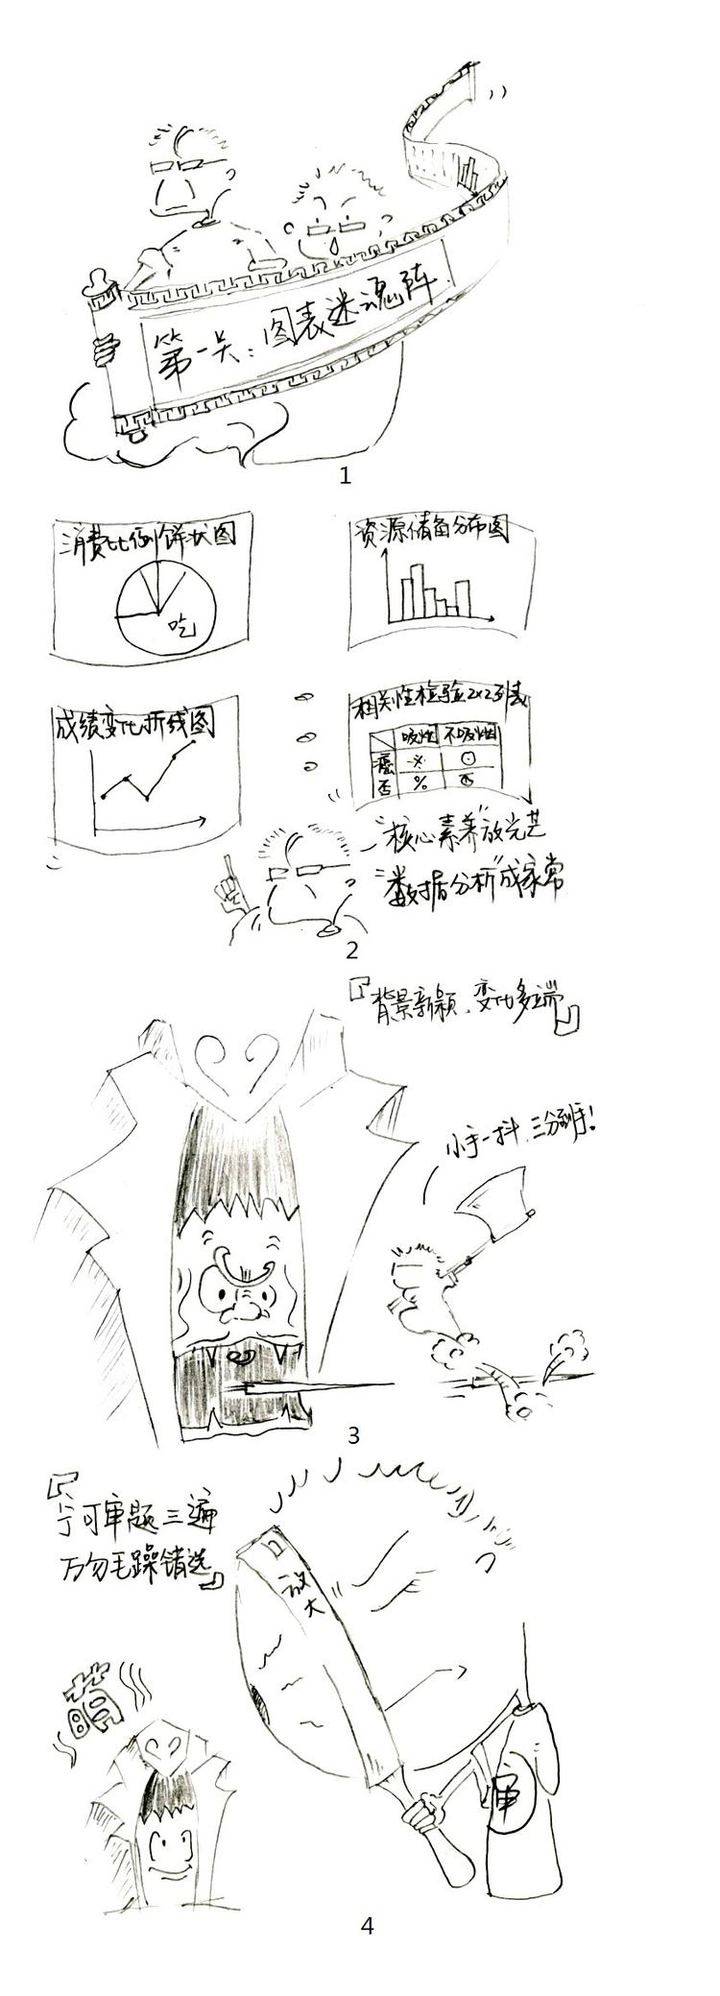 第一关：图表迷魂阵
1
消费比例饼状图
吃
资源储备分布图
成绩变化折线图
相关性检验2×2列表
吸烟 不吸烟
癌
否 %
“核心素养”放光芒
“数据分析”成家常
2
『背景新颖，变化多端』
小手一抖，三分到手！
3
『宁可审题三遍
万勿毛躁错选』
放大
萌
审
4